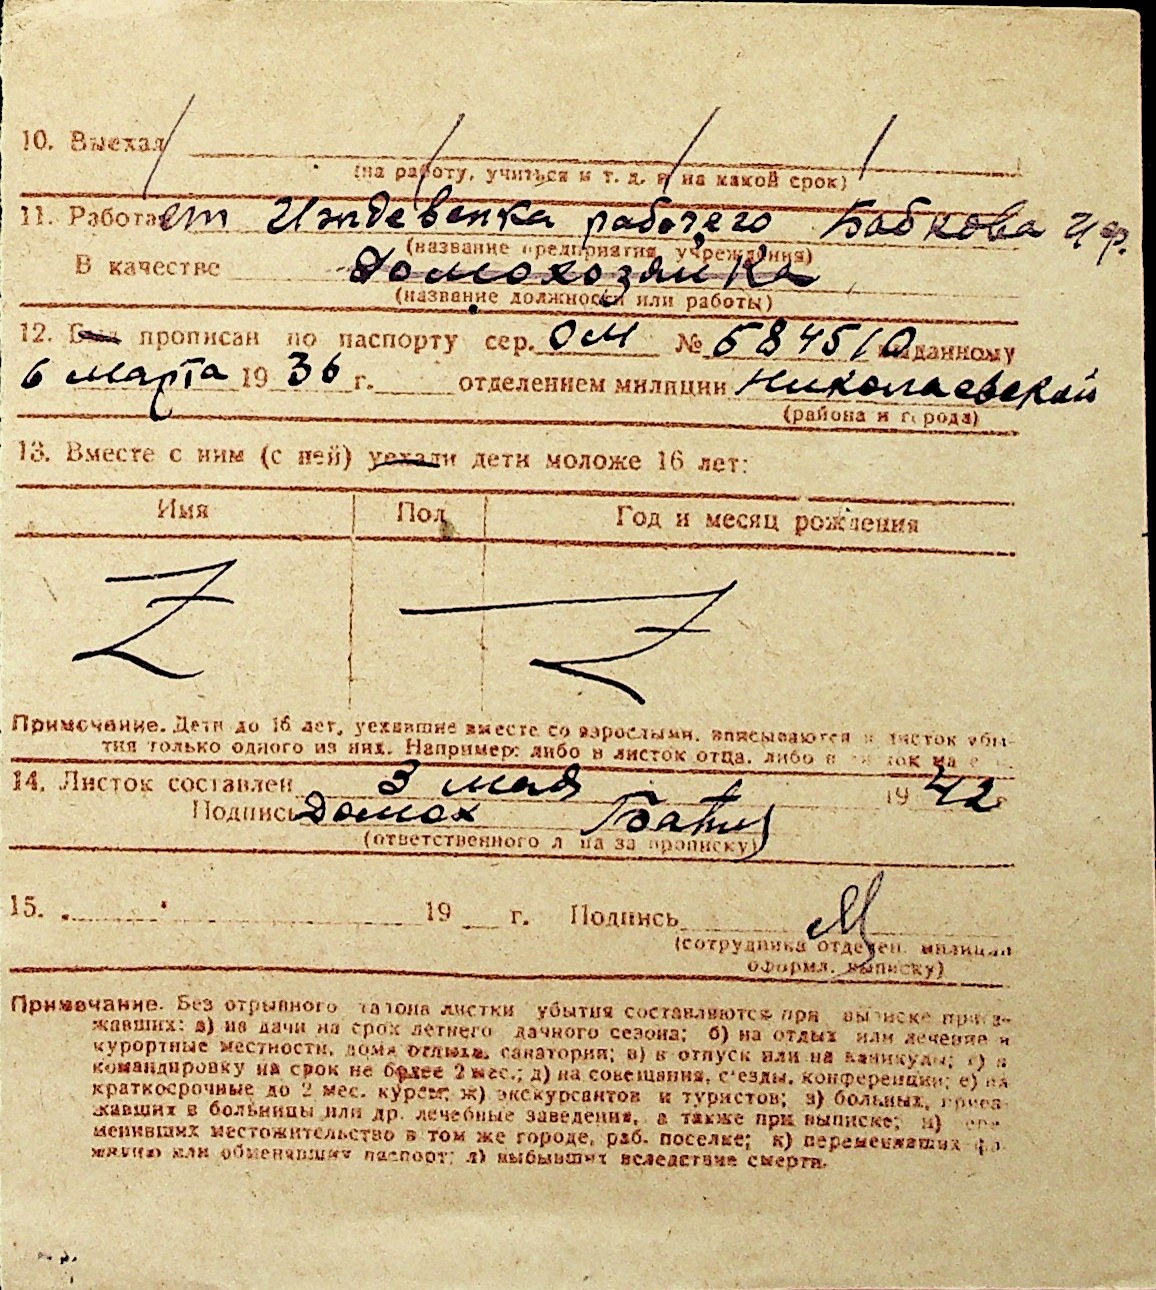 10. Выехал
(на работу, учиться и т. д. и на какой срок)
11. Работает Иждевенка рабочего Бабкова Ир.
(название предприятия учреждения)
В качестве Домохозяйка
(название должности или работы)
12. Был прописан по паспорту сер. ОМ № 584510 выданному
6 марта 1936 г. отделением милиции Николаевский
(района и города)
13. Вместе с ним (с ней) уехали дети моложе 16 лет:
Имя Пол Год и месяц рождения
Z Z
Примечание. Дети до 16 лет, уехавшие вместе со взрослыми, вписываются в листок убы-
тия только одного из них. Например: либо в листок отца, либо в листок
14. Листок составлен 3 мая 1942 г.
Подпись Домох
(ответственного лица за прописку)
15. 19 г. Подпись
(сотрудника отделен. милиции
оформл. выписку)
Примечание. Без отрывного талона листки убытия составляются при выписке приез-
жавших: а) на дачи на срок летнего дачного сезона; б) на отдых или лечение в
курортные местности, дома отдыха, санатории; в) в отпуск или на каникулы; г) в
командировку на срок не более 2 мес.; д) на совещания, съезды, конференции; е) на
краткосрочные до 2 мес. курсы; ж) экскурсантов и туристов; з) больных, приез-
жавших в больницы или др. лечебные заведения, а также при выписке; и) пере-
менивших местожительство в том же городе, раб. поселке; к) переменивших фа-
милию или обменявших паспорт; л) выбывших вследствие смерти.